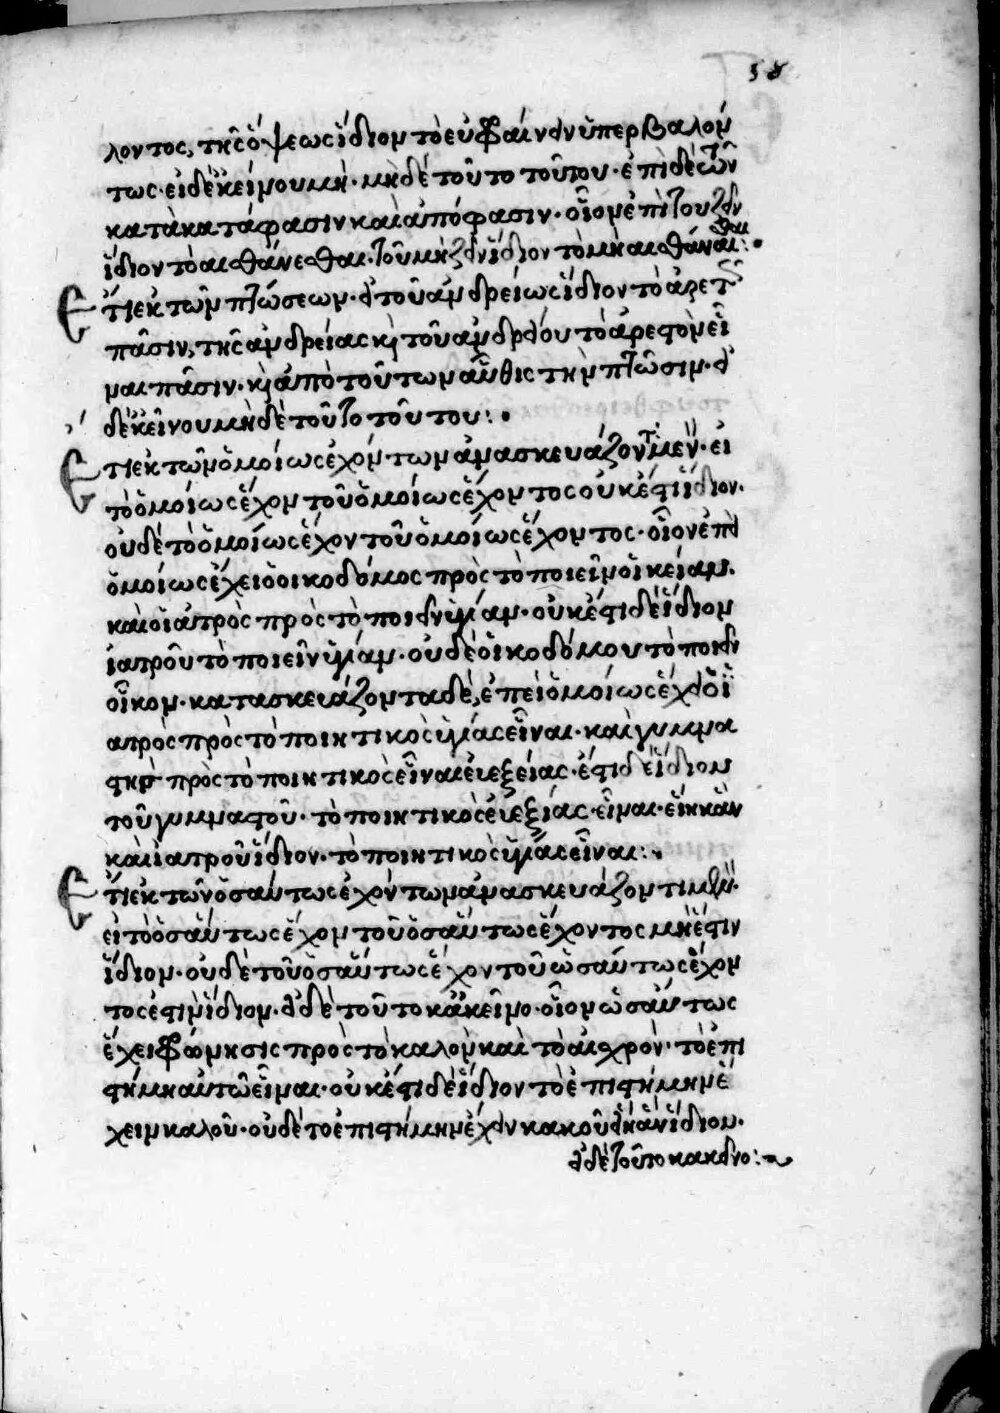 58
λοντος, τῆς ὄψεως ἴδιον τὸ εὐφραίνειν ὑπερβαλόν
τως· εἰ δὲ κεῖνου μὴ· μὴ δὲ τοῦτο τούτου· ἐπὶ δὲ τῶν
κατὰ κατάφασιν καὶ ἀπόφασιν· οἷον ἐπὶ τοῦ ζῆν
ἴδιον τὸ αἰσθάνεσθαι· τοῦ μὴ ζῆν ἴδιον τὸ μὴ αἰσθάνεσθαι:
Ἔτι ἐκ τῶν πτώσεων· εἰ τοῦ ἀνδρείως ἴδιον τὸ ἀρετ
πᾶσιν, τῆς ἀνδρείας κ τοῦ ἀνδρείου τὸ ἀρεστὸν εἶ
ναι πᾶσιν· κ ἀπὸ τούτων αὖθις τὴν πτῶσιν· εἰ
δὲ κείνου μὴ δὲ τοῦτο τούτου:
Ἔτι ἐκ τῶν ὁμοίως ἐχόντων ἀνασκευάζοντι μὲν· εἰ
τὸ ὁμοίως ἔχον τοῦ ὁμοίως ἔχοντος οὐκ ἔστι ἴδιον·
οὐδὲ τὸ ὁμοίως ἔχον τοῦ ὁμοίως ἔχοντος· οἷον ἐπεὶ
ὁμοίως ἔχει ὁ οἰκοδόμος πρὸς τὸ ποιεῖν οἰκείαν·
καὶ ὁ ἰατρὸς πρὸς τὸ ποιεῖν ὑγίαν· οὐκ ἔστι δὲ ἴδιον
ἰατροῦ τὸ ποιεῖν ὑγίαν· οὐδὲ οἰκοδόμου τὸ ποιεῖν
οἶκον· κατασκευάζοντα δέ, ἐπεὶ ὁμοίως ἔχει ὁ ἰ
ατρὸς πρὸς τὸ ποιητικὸς ὑγίας εἶναι· καὶ γυμνα
στὴς πρὸς τὸ ποιητικὸς εἶναι εὐεξείας· ἔστι δὲ ἴδιον
τοῦ γυμναστοῦ· τὸ ποιητικὸς εὐεξίας εἶναι· εἴη κἂν
καὶ ἰατροῦ ἴδιον· τὸ ποιητικὸς ὑγίας εἶναι:
Ἔτι ἐκ τῶν ὁσαύτως ἐχόντων ἀνασκευάζοντι μὲν·
εἰ τὸ ὁσαύτως ἔχον τοῦ ὁσαύτως ἔχοντος μὴ ἔστιν
ἴδιον· οὐδὲ τοῦ ὁσαύτως ἔχον τοῦ ὡσαύτως ἔχον
τος ἔστιν ἴδιον· εἰ δὲ τοῦτο κἀκεῖνο· οἷον ὡσαύτως
ἔχει φρόνησις πρὸς τὸ καλὸν καὶ τὸ αἰσχρόν· τὸ ἐπι
στήμη αὐτῶ εἶναι· οὐκ ἔστι δὲ ἴδιον τὸ ἐπιστήμην ἔ
χειν καλοῦ· οὐδὲ τὸ ἐπιστήμην ἔχειν κακοῦ εἴη ἂν ἴδιον·
εἰ δὲ τοῦτο κακεῖνο: